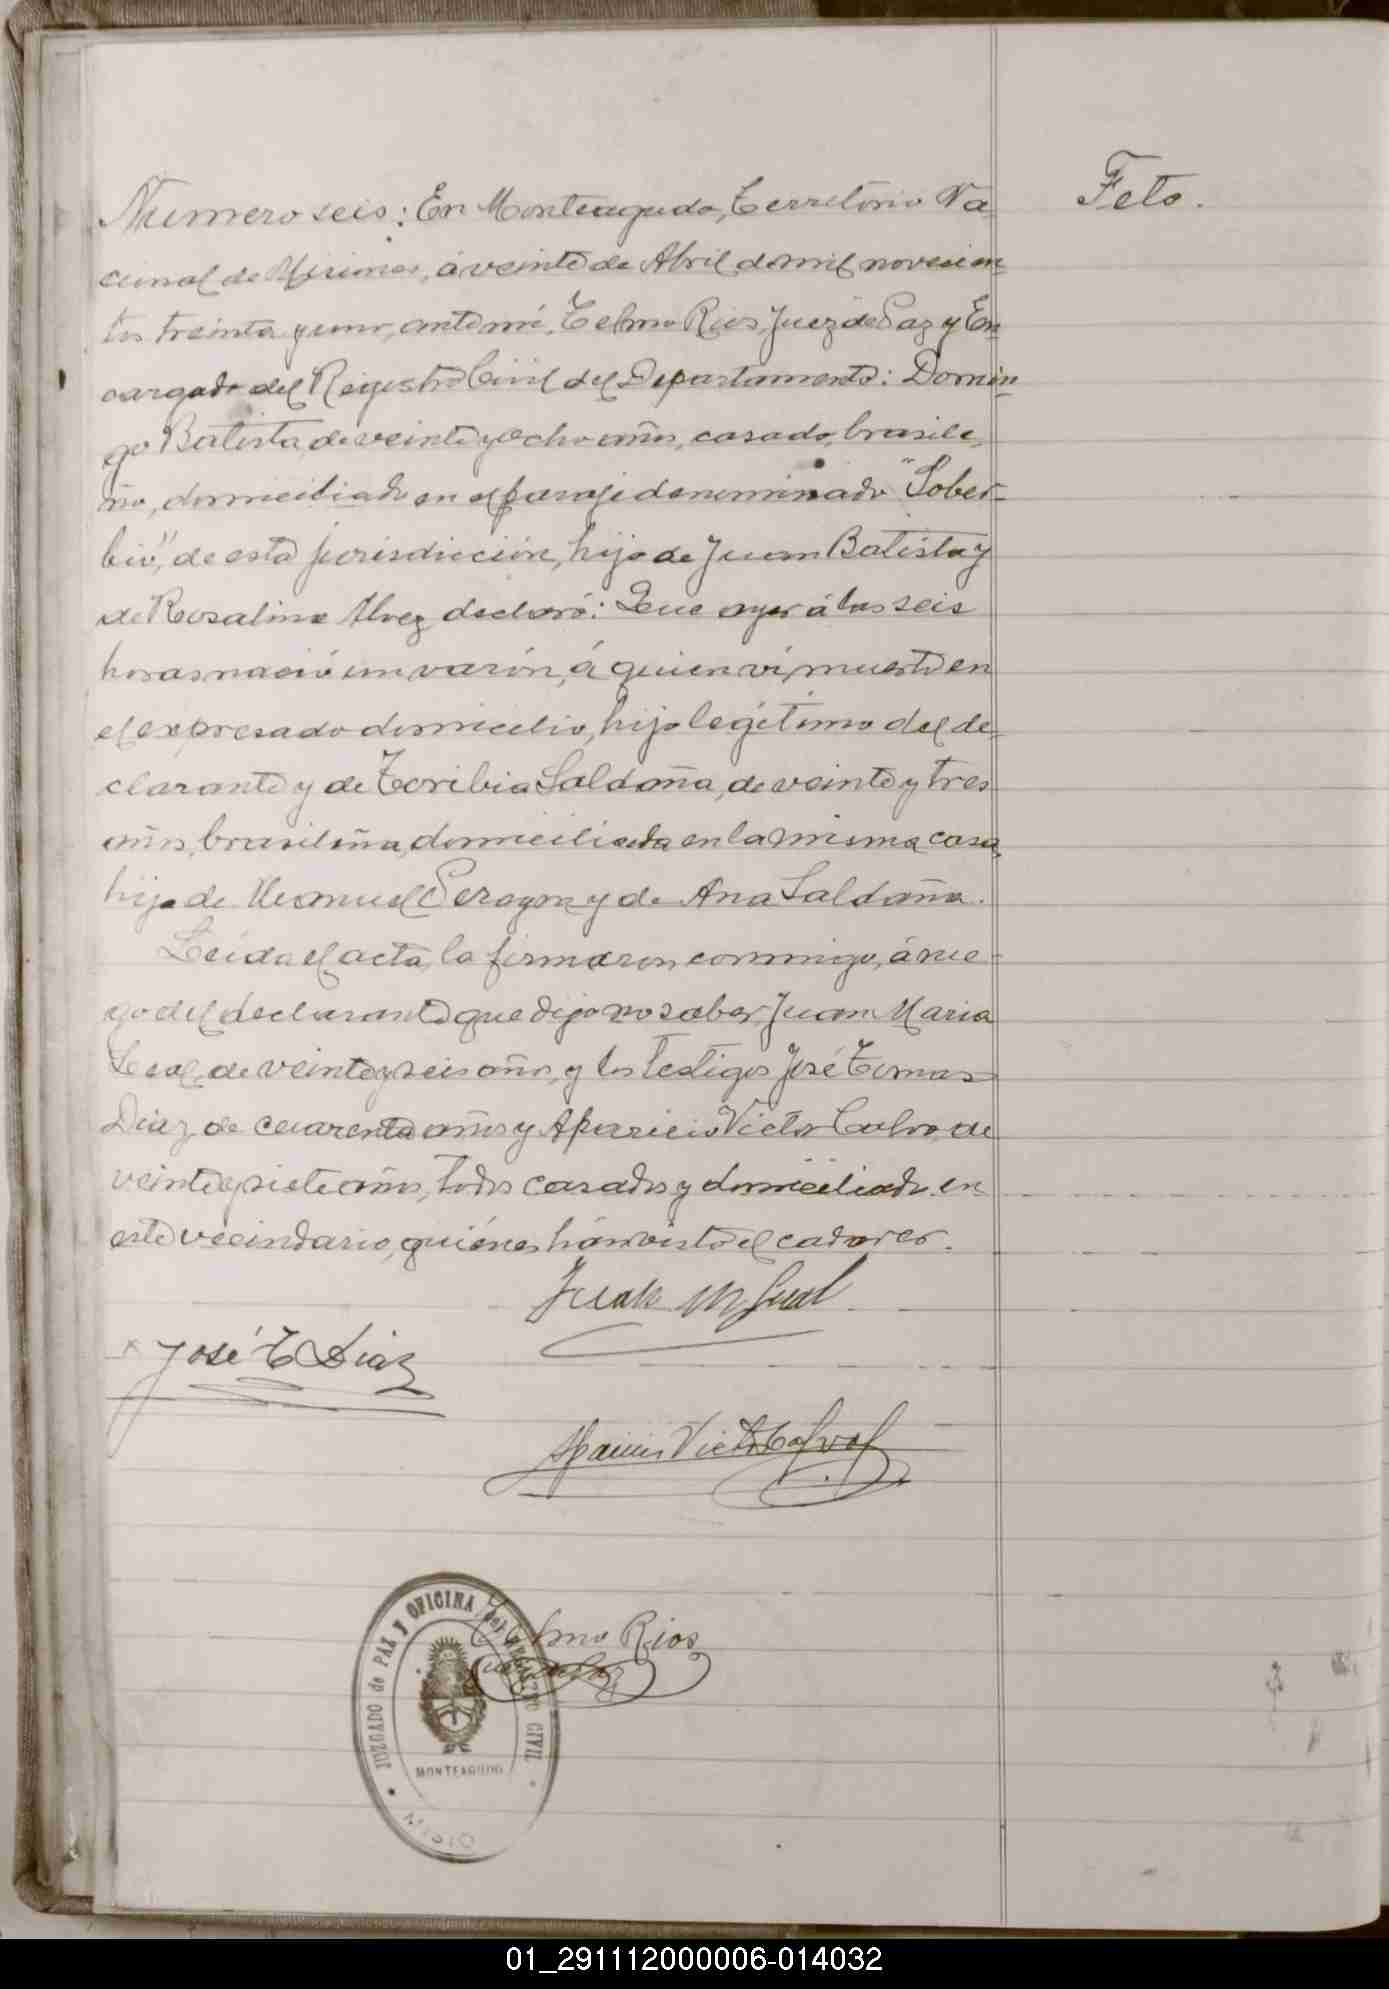 Feto.
Numero seis: En Monteagudo, Territorio Na-
cional de Misiones, á veinte de Abril de mil novecien
tos treinta y uno, ante mí, Telmo Rios, Juez de Paz y En-
cargado del Registro Civil del Departamento: Domin-
go Batista, de veinte y ocho años, casado, brasile-
ño, domiciliado en el paraje denominado "Sober-
bio", de esta jurisdicción, hijo de Juan Batista y
de Rosalina Alvez declaró: Que ayer á las seis
horas nació un varón, á quien ví muerto en
el expresado domicilio, hijo legítimo del de-
clarante y de Toribia Saldaña, de veinte y tres
años, brasileña, domiciliada en la misma casa,
hija de Manuel y de Ana Saldaña.
Leida el acta, la firmaron conmigo, á rue-
go del declarante que dijo no saber, Juan Maria
Leal, de veinte y seis años, y los testigos José Tomas
Diaz, de cuarenta años y Aparicio Victor Calvo, de
veinte y siete años, todos casados y domiciliado en
este vecindario, quiénes hán visto el cadaver.
Juan M Leal
José T Diaz
Aparicio Victor Calvo
Telmo Rios
Juez de Paz
JUZGADO de PAZ Y OFICINA del REGISTRO CIVIL
MONTEAGUDO
MISIO
01_291112000006-014032